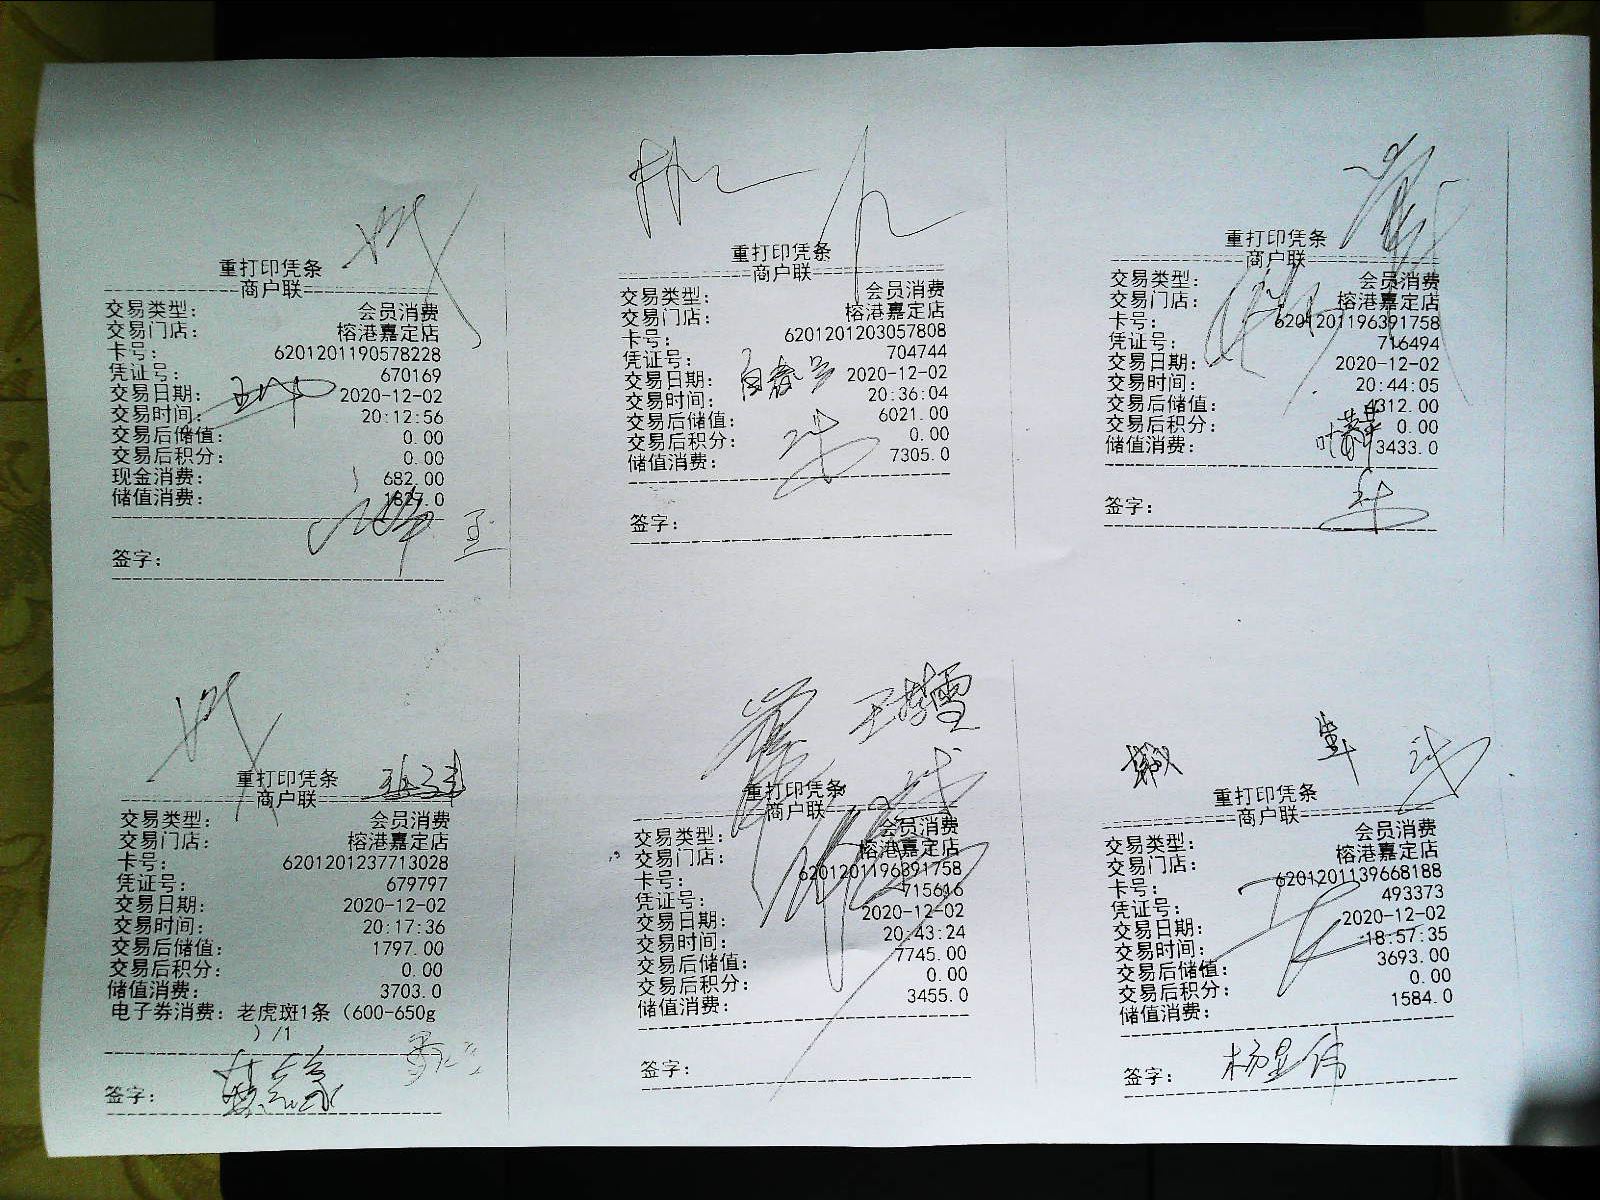 重打印凭条
商户联
交易类型： 会员消费
交易门店： 榕港嘉定店
卡号： 6201201190578228
凭证号： 670169
交易日期： 2020-12-02
交易时间： 20:12:56
交易后储值： 0.00
交易后积分： 0.00
现金消费： 682.00
储值消费： 1827.0
签字：
重打印凭条
商户联
交易类型： 会员消费
交易门店： 榕港嘉定店
卡号： 6201201203057808
凭证号： 704744
交易日期： 2020-12-02
交易时间： 20:36:04
交易后储值： 6021.00
交易后积分： 0.00
储值消费： 7305.0
签字：
重打印凭条
商户联
交易类型： 会员消费
交易门店： 榕港嘉定店
卡号： 6201201196391758
凭证号： 716494
交易日期： 2020-12-02
交易时间： 20:44:05
交易后储值： 4312.00
交易后积分： 0.00
储值消费： 3433.0
签字：
重打印凭条
商户联
交易类型： 会员消费
交易门店： 榕港嘉定店
卡号： 6201201237713028
凭证号： 679797
交易日期： 2020-12-02
交易时间： 20:17:36
交易后储值： 1797.00
交易后积分： 0.00
储值消费： 3703.0
电子券消费：老虎斑1条（600-650g
）/1
签字：
重打印凭条
商户联
交易类型： 会员消费
交易门店： 榕港嘉定店
卡号： 6201201196391758
凭证号： 715616
交易日期： 2020-12-02
交易时间： 20:43:24
交易后储值： 7745.00
交易后积分： 0.00
储值消费： 3455.0
签字：
重打印凭条
商户联
交易类型： 会员消费
交易门店： 榕港嘉定店
卡号： 6201201139668188
凭证号： 493373
交易日期： 2020-12-02
交易时间： 18:57:35
交易后储值： 3693.00
交易后积分： 0.00
储值消费： 1584.0
签字：